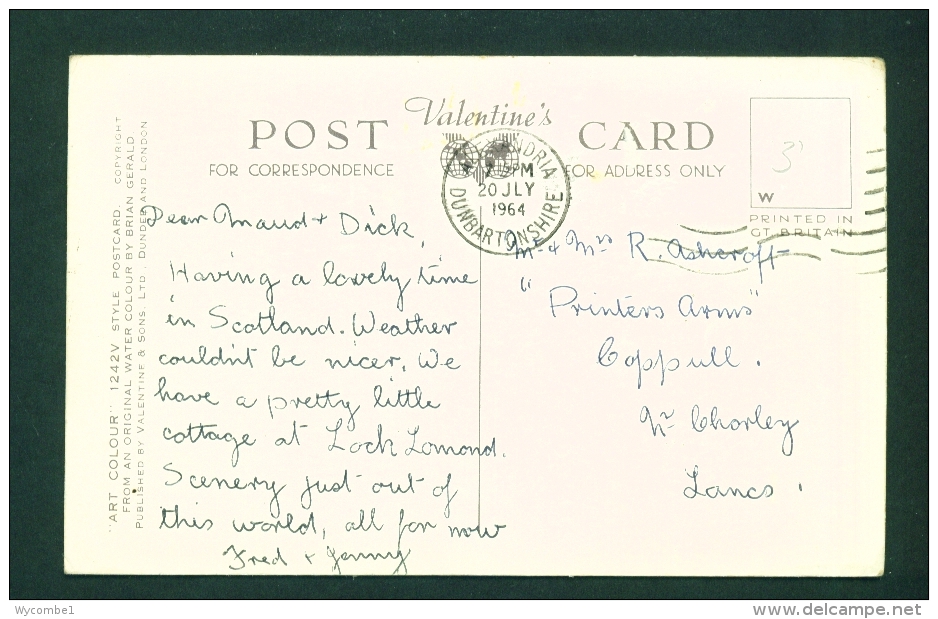 Valentine's
POST CARD
FOR CORRESPONDENCE
FOR ADDRESS ONLY
"ART COLOUR" 1242V STYLE POSTCARD. COPYRIGHT
FROM AN ORIGINAL WATER COLOUR BY BRIAN GERALD
PUBLISHED BY VALENTINE & SONS. LTD. DUNDEE AND LONDON
PM
20 JLY
1964
DUNBARTONSHIRE
W
3D
PRINTED IN
GT. BRITAIN
Dear Maud + Dick,
Having a lovely time
in Scotland. Weather
couldn't be nicer. We
have a pretty little
cottage at Lock Lomond.
Scenery just out of
this world, all for now
Fred + Jenny
Mr + Mrs R. Ashcroft
"Printers Arms"
Coppull.
Nr Chorley
Lancs.
Wycombe1
www.delcampe.net